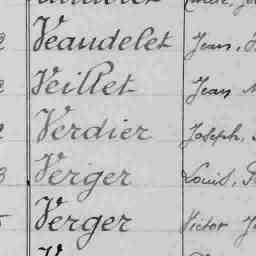 Veaudelet Jean,
Veillet Jean
Verdier Joseph,
Verger Louis,
Verger Victor